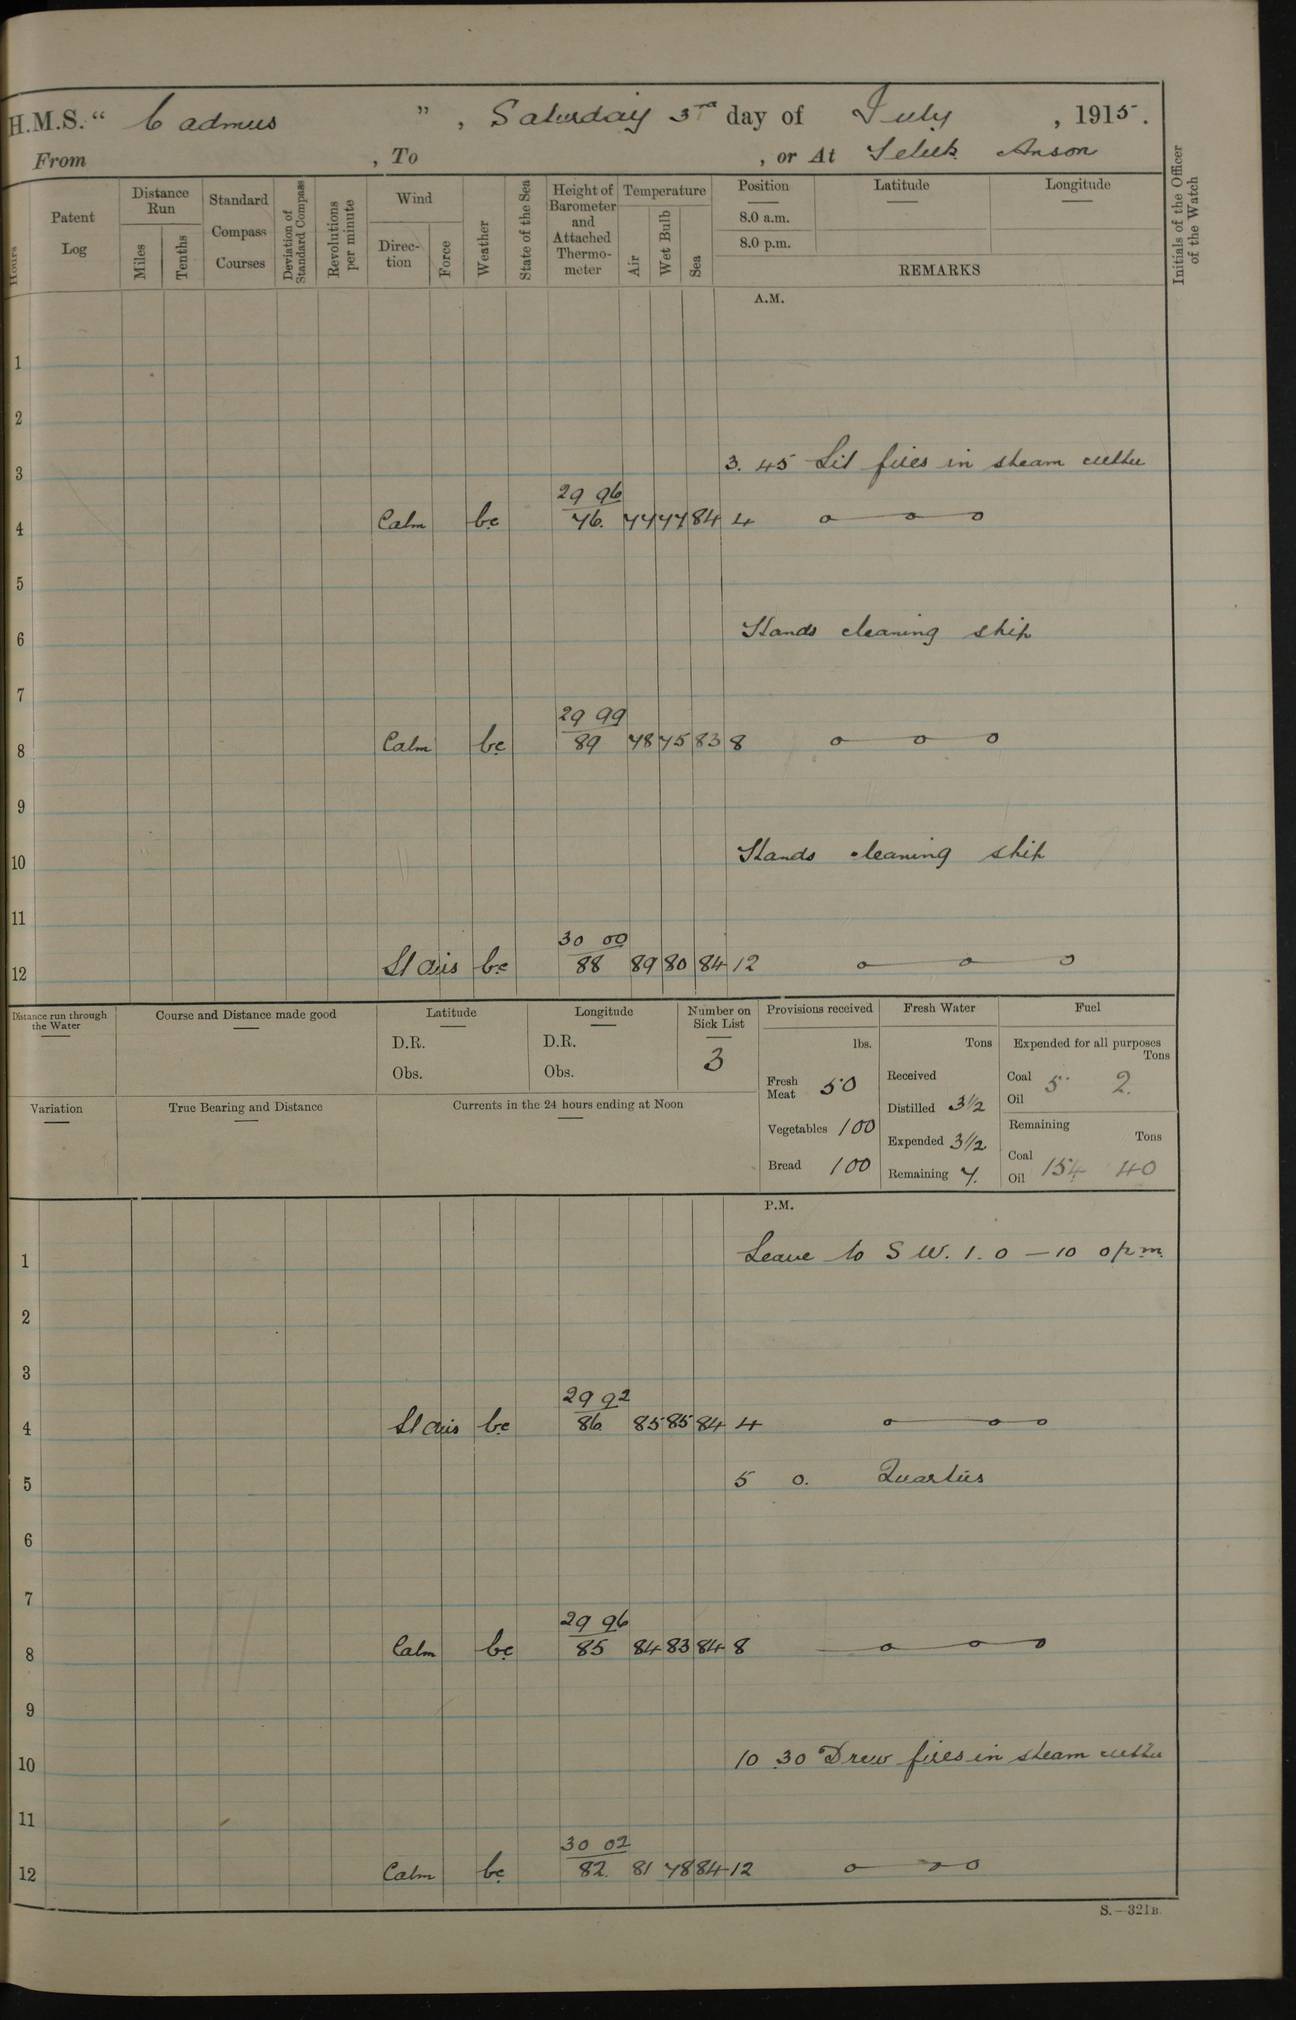 H.M.S. " Cadmus " , Saturday 3rd day of July , 1915 .
From , To , or At Teluk Anson
Hours
Patent Log
Distance Run
Miles
Tenths
Standard Compass Courses
Deviation of Standard Compass
Revolutions per minute
Wind
Direction
Force
Weather
State of the Sea
Height of Barometer and Attached Thermometer
Temperature
Air
Wet Bulb
Sea
Position
8.0 a.m.
8.0 p.m.
Latitude
Longitude
REMARKS
Initials of the Officer of the Watch
A.M.
1
2
3 3. 45 Lit fires in steam cutter
29 96
4 Calm bc 76. 77 77 84 4 o o o
5
6 Hands cleaning ship
7
29 99
8 Calm bc 89 78 75 83 8 o o o
9
10 Hands cleaning ship
11
30 00
12 Lt airs bc 88 89 80 84 12 o o o
Distance run through the Water
Course and Distance made good
Latitude
D.R.
Obs.
Longitude
D.R.
Obs.
Number on Sick List
3
Provisions received
lbs.
Fresh Meat 50
Vegetables 100
Bread 100
Fresh Water
Tons
Received
Distilled 3½
Expended 3½
Remaining 7.
Fuel
Expended for all purposes
Tons
Coal 5 2.
Oil
Remaining
Tons
Coal 154 40
Oil
Variation
True Bearing and Distance
Currents in the 24 hours ending at Noon
P.M.
1 Leave to S W. 1. 0 — 10 0 p.m.
2
3
29 92
4 Lt airs bc 86. 85 85 84 4 o o o
5 5 0. Quarters
6
7
29 96
8 Calm bc 85 84 83 84 8 o o o
9
10 10 30 Drew fires in steam cutter
11
30 02
12 Calm bc 82. 81 78 84 12 o o o
S.—321B.